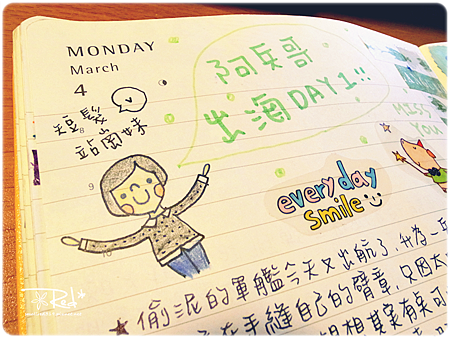 MONDAY
March
4
短髮
站崗妹
8
9
10
阿兵哥
出海DAY1!!
MISS
YOU
everyday
smile
偷泥的軍艦今天又出航了,我為一
在手縫自己的臂章,只因太
Red*